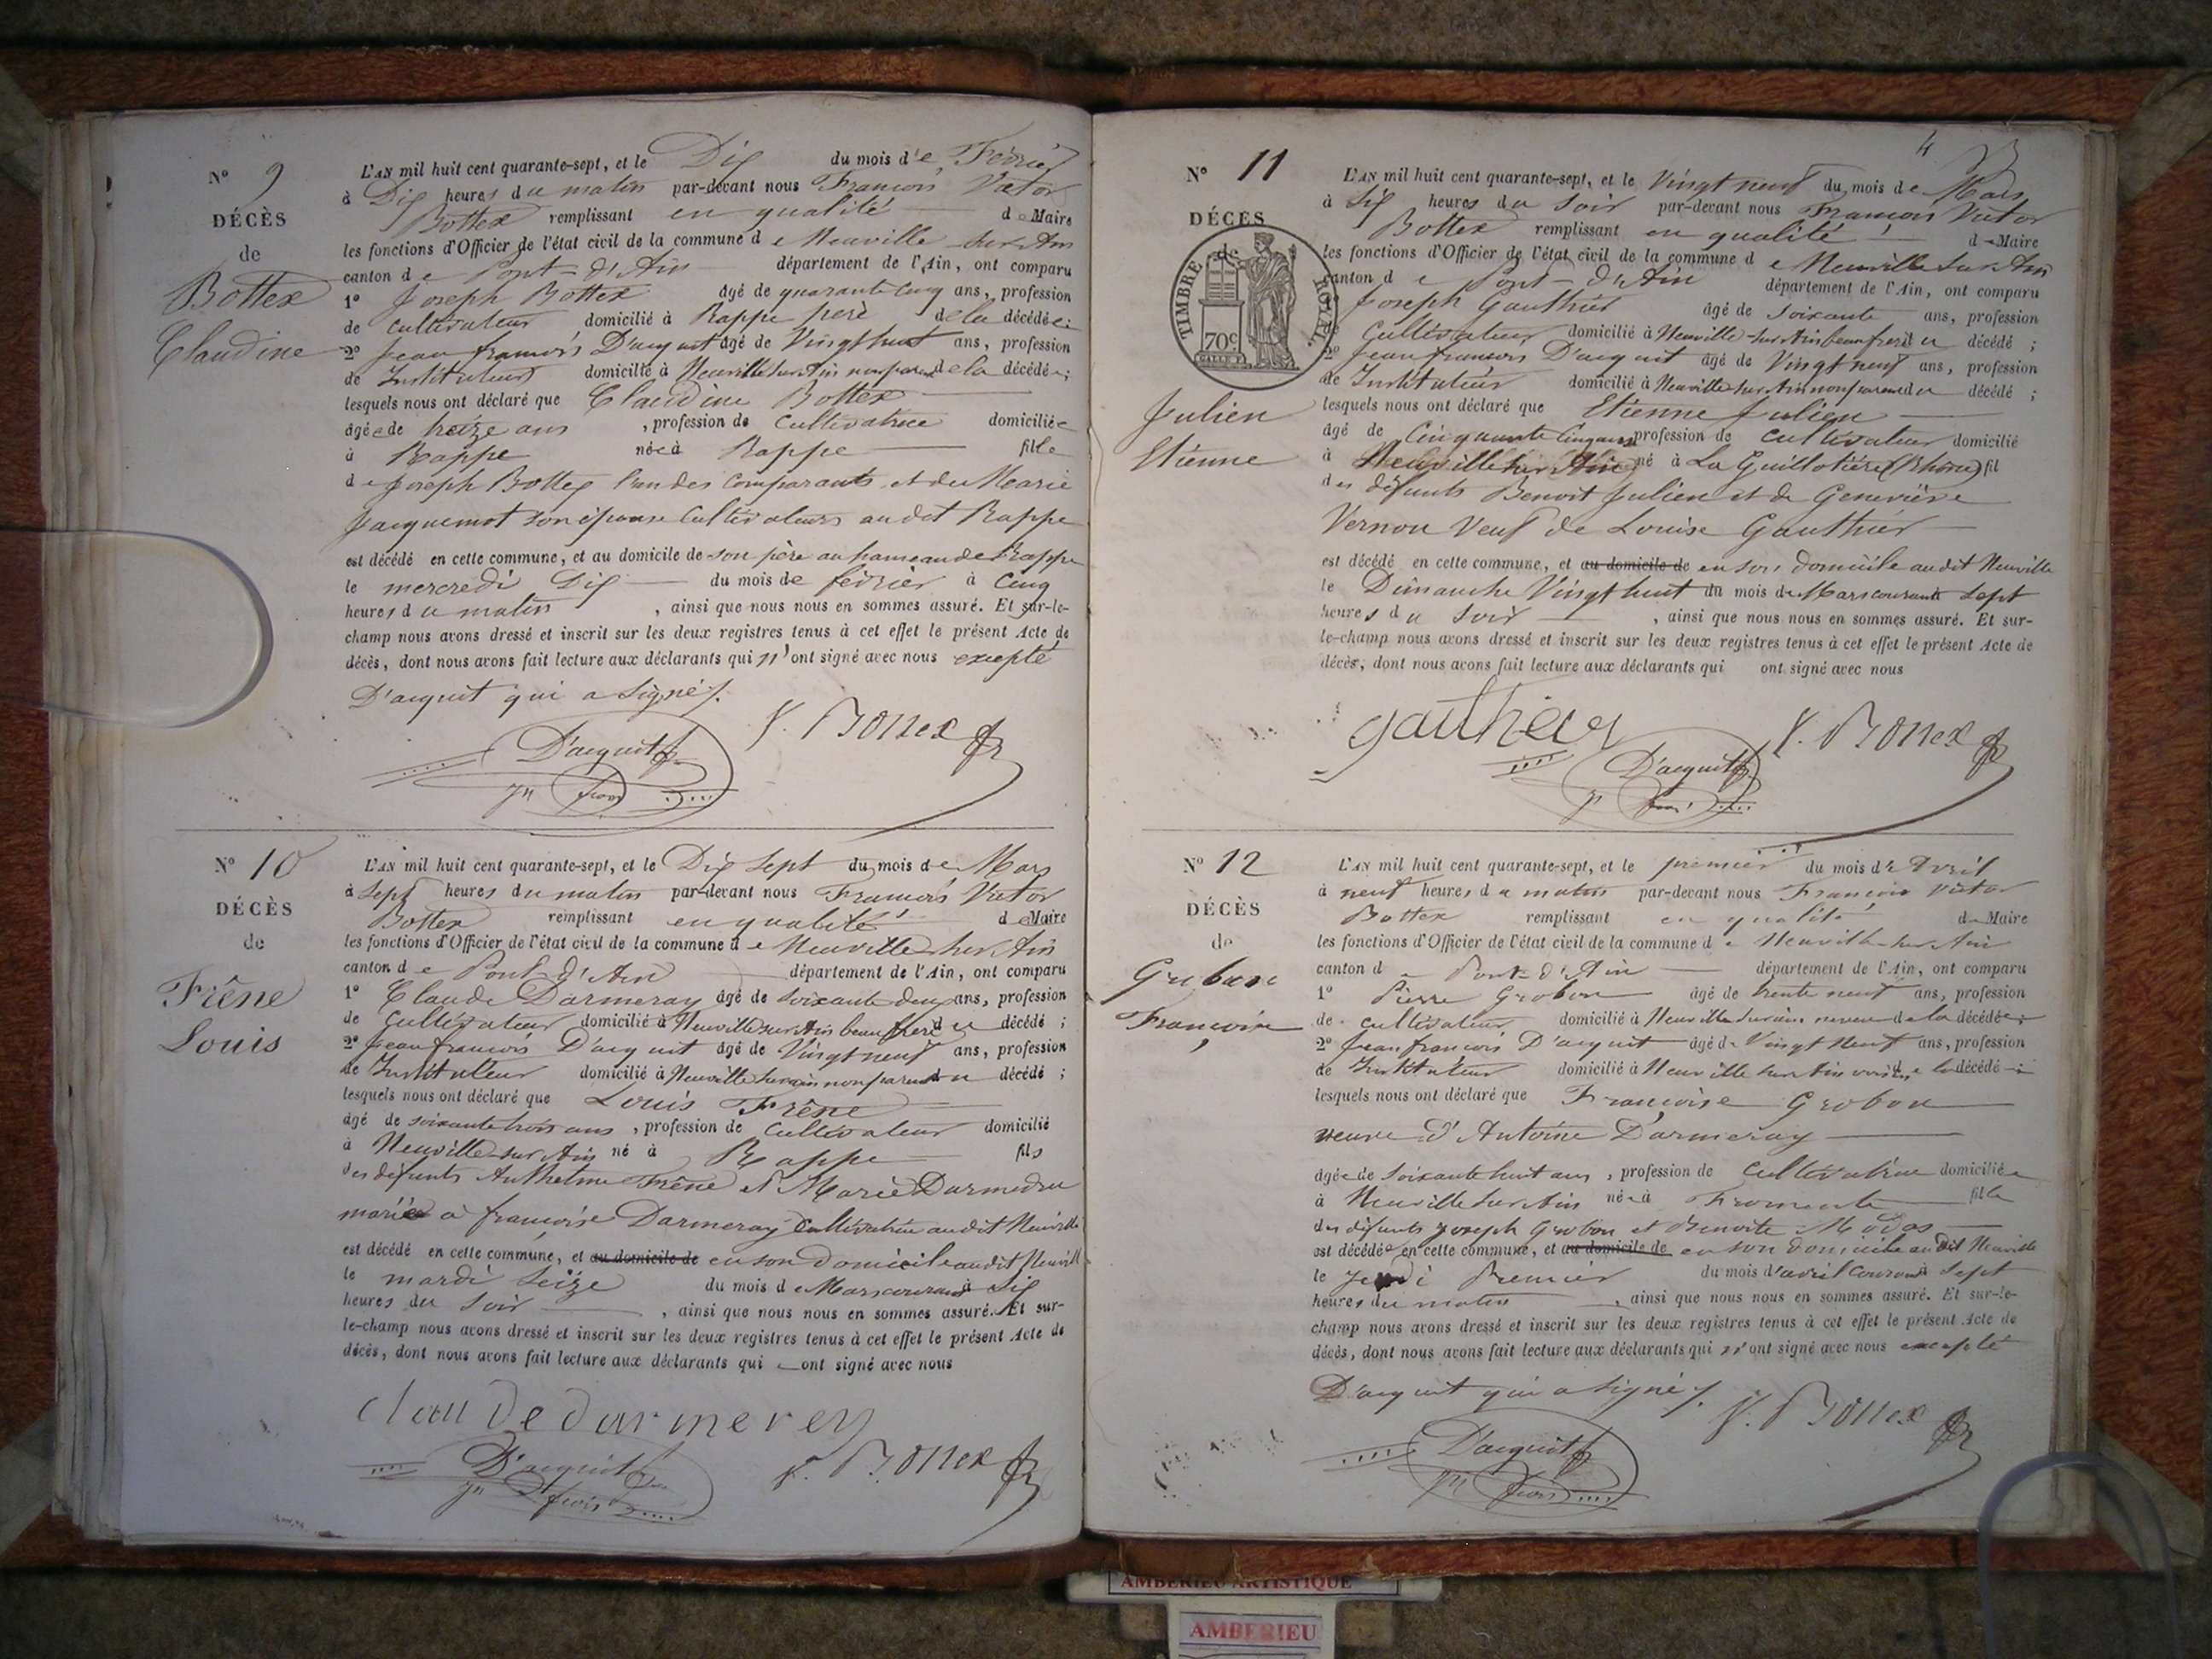 N° 9
DÉCÈS
de
Bottex
Claudine
L'AN mil huit cent quarante-sept, et le Dix du mois de Février
à Dix heures du matin par-devant nous François Victor
Bottex remplissant en qualité de Maire
les fonctions d'Officier de l'état civil de la commune de Neuville-sur-Ain
canton de Pont-d'Ain département de l'Ain, ont comparu
1° Joseph Bottex âgé de quarante cinq ans, profession
de cultivateur domicilié à Rappe père de la décédée;
2° Jean françois D'acquit âgé de Vingt huit ans, profession
de Instituteur domicilié à Neuville sur Ain non parent de la décédée;
lesquels nous ont déclaré que Claudine Bottex
âgée de treize ans, profession de Cultivatrice domiciliée
à Rappe née à Rappe fille
de Joseph Bottex l'un des comparants et de Marie
Jacquemot son épouse Cultivateurs au dit Rappe
est décédé en cette commune, et au domicile de son père au hameau de Rappe
le mercredi Dix du mois de février à Cinq
heures du matin, ainsi que nous nous en sommes assuré. Et sur-le-
champ nous avons dressé et inscrit sur les deux registres tenus à cet effet le présent Acte de
décès, dont nous avons fait lecture aux déclarants qui n'ont signé avec nous excepté
D'acquit qui a signé.
D'acquit V. Bottex
Jn frois
N° 10
DÉCÈS
de
Frêne
Louis
L'AN mil huit cent quarante-sept, et le Dix Sept du mois de Mars
à Sept heures du matin par-devant nous François Victor
Bottex remplissant en qualité de Maire
les fonctions d'Officier de l'état civil de la commune de Neuville sur Ain
canton de Pont-d'Ain département de l'Ain, ont comparu
1° Claude Darmeray âgé de soixante deux ans, profession
de Cultivateur domicilié à Neuville sur Ain beau frere du décédé;
2° Jean françois D'acquit âgé de Vingt neuf ans, profession
de Instituteur domicilié à Neuville sur ain non parent du décédé;
lesquels nous ont déclaré que Louis Frêne
âgé de soixante trois ans, profession de Cultivateur domicilié
à Neuville-sur-Ain né à Rappe fils
des défunts Anthelme Frêne et Marie Darmedru
marié à françoise Darmeray Cultivatrice au dit Neuville
est décédé en cette commune, et au domicile de en son Domicile audit Neuville
le mardi Seize du mois de Mars courant à Six
heures du Soir, ainsi que nous nous en sommes assuré. Et sur-
le-champ nous avons dressé et inscrit sur les deux registres tenus à cet effet le présent Acte de
décès, dont nous avons fait lecture aux déclarants qui ont signé avec nous
claude darmerey
D'acquit V. Bottex
Jn frois
4
N° 11
DÉCÈS
de
TIMBRE ROYAL
70c
Julien
Etienne
L'AN mil huit cent quarante-sept, et le Vingt neuf du mois de Mars
à Six heures du Soir par-devant nous François Victor
Bottex remplissant en qualité de Maire
les fonctions d'Officier de l'état civil de la commune de Neuville sur Ain
canton de Pont-d'Ain département de l'Ain, ont comparu
Joseph Gauthier âgé de soixante ans, profession
Cultivateur domicilié à Neuville-sur-Ain beau frere du décédé;
2° Jean françois D'acquit âgé de Vingt neuf ans, profession
de Instituteur domicilié à Neuville-sur-Ain non parent du décédé;
lesquels nous ont déclaré que Etienne Julien
âgé de Cinquante Cinq ans, profession de cultivateur domicilié
à Neuville sur Ain né à La Guillotière (Rhône) fil
des défunts Benoit Julien et de Geneviève
Vernou Veuf de Louise Gauthier
est décédé en cette commune, et au domicile de en son Domicile au dit Neuville
le Dimanche Vingt huit du mois de Mars courant à Sept
heures du Soir, ainsi que nous nous en sommes assuré. Et sur-
le-champ nous avons dressé et inscrit sur les deux registres tenus à cet effet le présent Acte de
décès, dont nous avons fait lecture aux déclarants qui ont signé avec nous
gauthier
D'acquit V. Bottex
Jn frois
N° 12
DÉCÈS
de
Grobon
Françoise
L'AN mil huit cent quarante-sept, et le premier du mois d'Avril
à neuf heures du matin par-devant nous François Victor
Bottex remplissant en qualité de Maire
les fonctions d'Officier de l'état civil de la commune de Neuville-sur-Ain
canton de Pont-d'Ain département de l'Ain, ont comparu
1° Pierre Grobon âgé de trente neuf ans, profession
de cultivateur domicilié à Neuville sur ain neveu de la décédée;
2° Jean françois D'acquit âgé de Vingt Neuf ans, profession
de Instituteur domicilié à Neuville sur Ain voisin de la décédée;
lesquels nous ont déclaré que Françoise Grobon
veuve d'Antoine Darmeray
âgée de soixante huit ans, profession de Cultivatrice domiciliée
à Neuville sur Ain née à Fromente fille
des défunts Joseph Grobon et Benoite
est décédée en cette commune, et au domicile de en son Domicile au dit Neuville
le Jeudi Premier du mois d'avril courant à Sept
heures du matin, ainsi que nous nous en sommes assuré. Et sur-le-
champ nous avons dressé et inscrit sur les deux registres tenus à cet effet le présent Acte de
décès, dont nous avons fait lecture aux déclarants qui n'ont signé avec nous excepté
D'acquit qui a signé.
D'acquit V. Bottex
Jn frois
AMBERIEU ARTISTIQUE
AMBERIEU